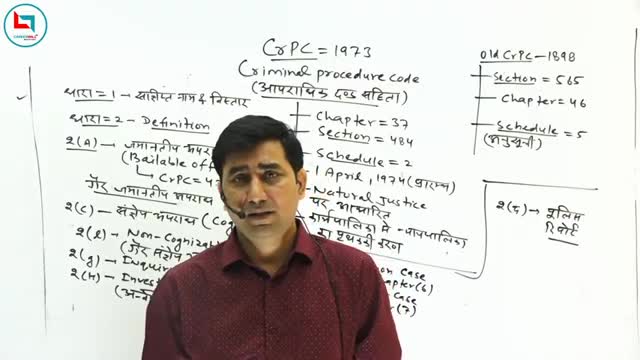 CrPC = 1973
Criminal procedure code
(आपराधिक दण्ड संहिता)
धारा = 1 - संक्षिप्त नाम & विस्तार
धारा = 2 - Definition
2(a) → जमानतीय अपराध
(Bailable off
↳ CrPC = 4
गैर जमानतीय अपराध
2(c) → संज्ञेय अपराध (Cog
2(l) → Non-Cognizab
2(g) → Inquir
2(h) → Invest
Chapter = 37
Section = 484
Schedule = 2
1 April, 1974 (प्रारम्भ)
Natural Justice
पर आधारित
कार्यपालिका से न्यायपालिका
का पृथक्करण
on case
apter (6)
Case
r (7)
old CrPC - 1898
Section = 565
Chapter = 46
Schedule = 5
(अनुसूची)
2(r) → पुलिस
रिपोर्ट